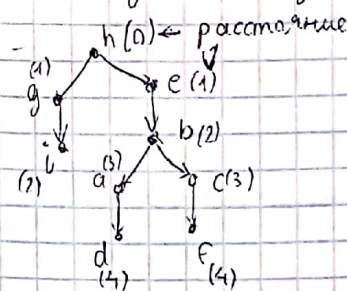 h (0) ← расстояние
(1)
g
e (1)
b (2)
i
(2)
a (3)
c (3)
d
(4)
f
(4)